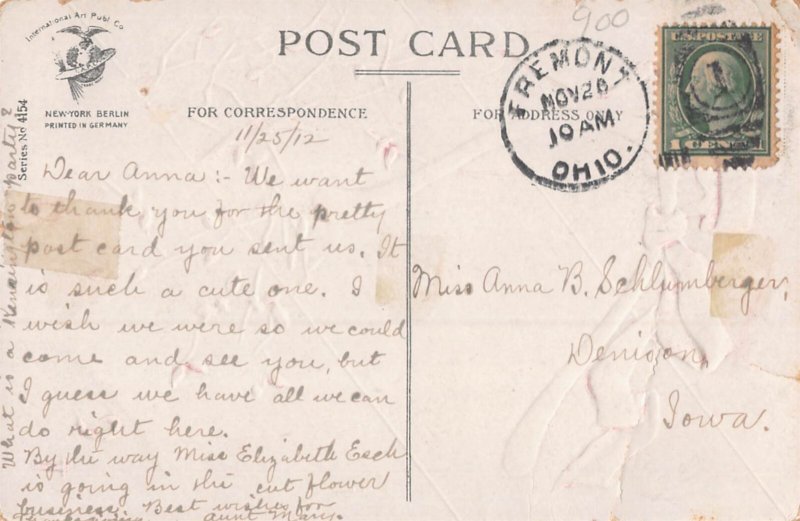 International Art Publ. Co.
NEW-YORK BERLIN
PRINTED IN GERMANY
Series No 4154
POST CARD
900
FOR CORRESPONDENCE
FOR ADDRESS ONLY
FREMONT
NOV 26
10 AM
OHIO.
U.S. POSTAGE
1 CENT 1
11/25/12
Dear Anna :- We want
to thank you for the pretty
post card you sent us. It
is such a cute one. I
wish we were so we could
come and see you, but
I guess we have all we can
do right here.
By the way Miss Elizabeth Esch
is going in the cut flower
business. Best wishes for
Thanksgiving. Aunt Mary.
What is a Kensington party?
Miss Anna B. Schlumberger,
Denison,
Iowa.